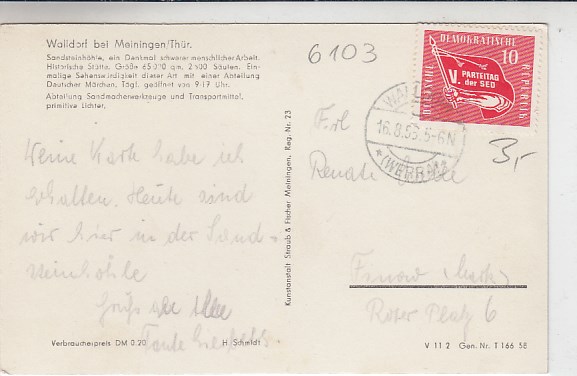 Walldorf bei Meiningen/Thür.
Sandsteinhöhle, ein Denkmal schwerer menschlicher Arbeit.
Historische Stätte. Größe 65 000 qm, 2 500 Säulen. Ein-
malige Sehenswürdigkeit dieser Art mit einer Abteilung
Deutscher Märchen. Tägl. geöffnet von 9-17 Uhr.
Abteilung Sandmacherwerkzeuge und Transportmittel,
primitive Lichter.
6103
DEUTSCHE DEMOKRATISCHE REPUBLIK
10
V. PARTEITAG
der SED
WALLDORF
16.8.58.5-6N
(WERRA)
3,-
Meine Karte habe ich
erhalten. Heute sind
wir hier in der Sand-
steinhöhle
Gruß an Alle
Tante
Frl
Renate
Finow (Mark)
Roter Platz 6
Kunstanstalt Straub & Fischer Meiningen, Reg. Nr. 23
Verbraucherpreis DM 0.20 H. Schmidt
V 11 2 Gen. Nr. T 166 58